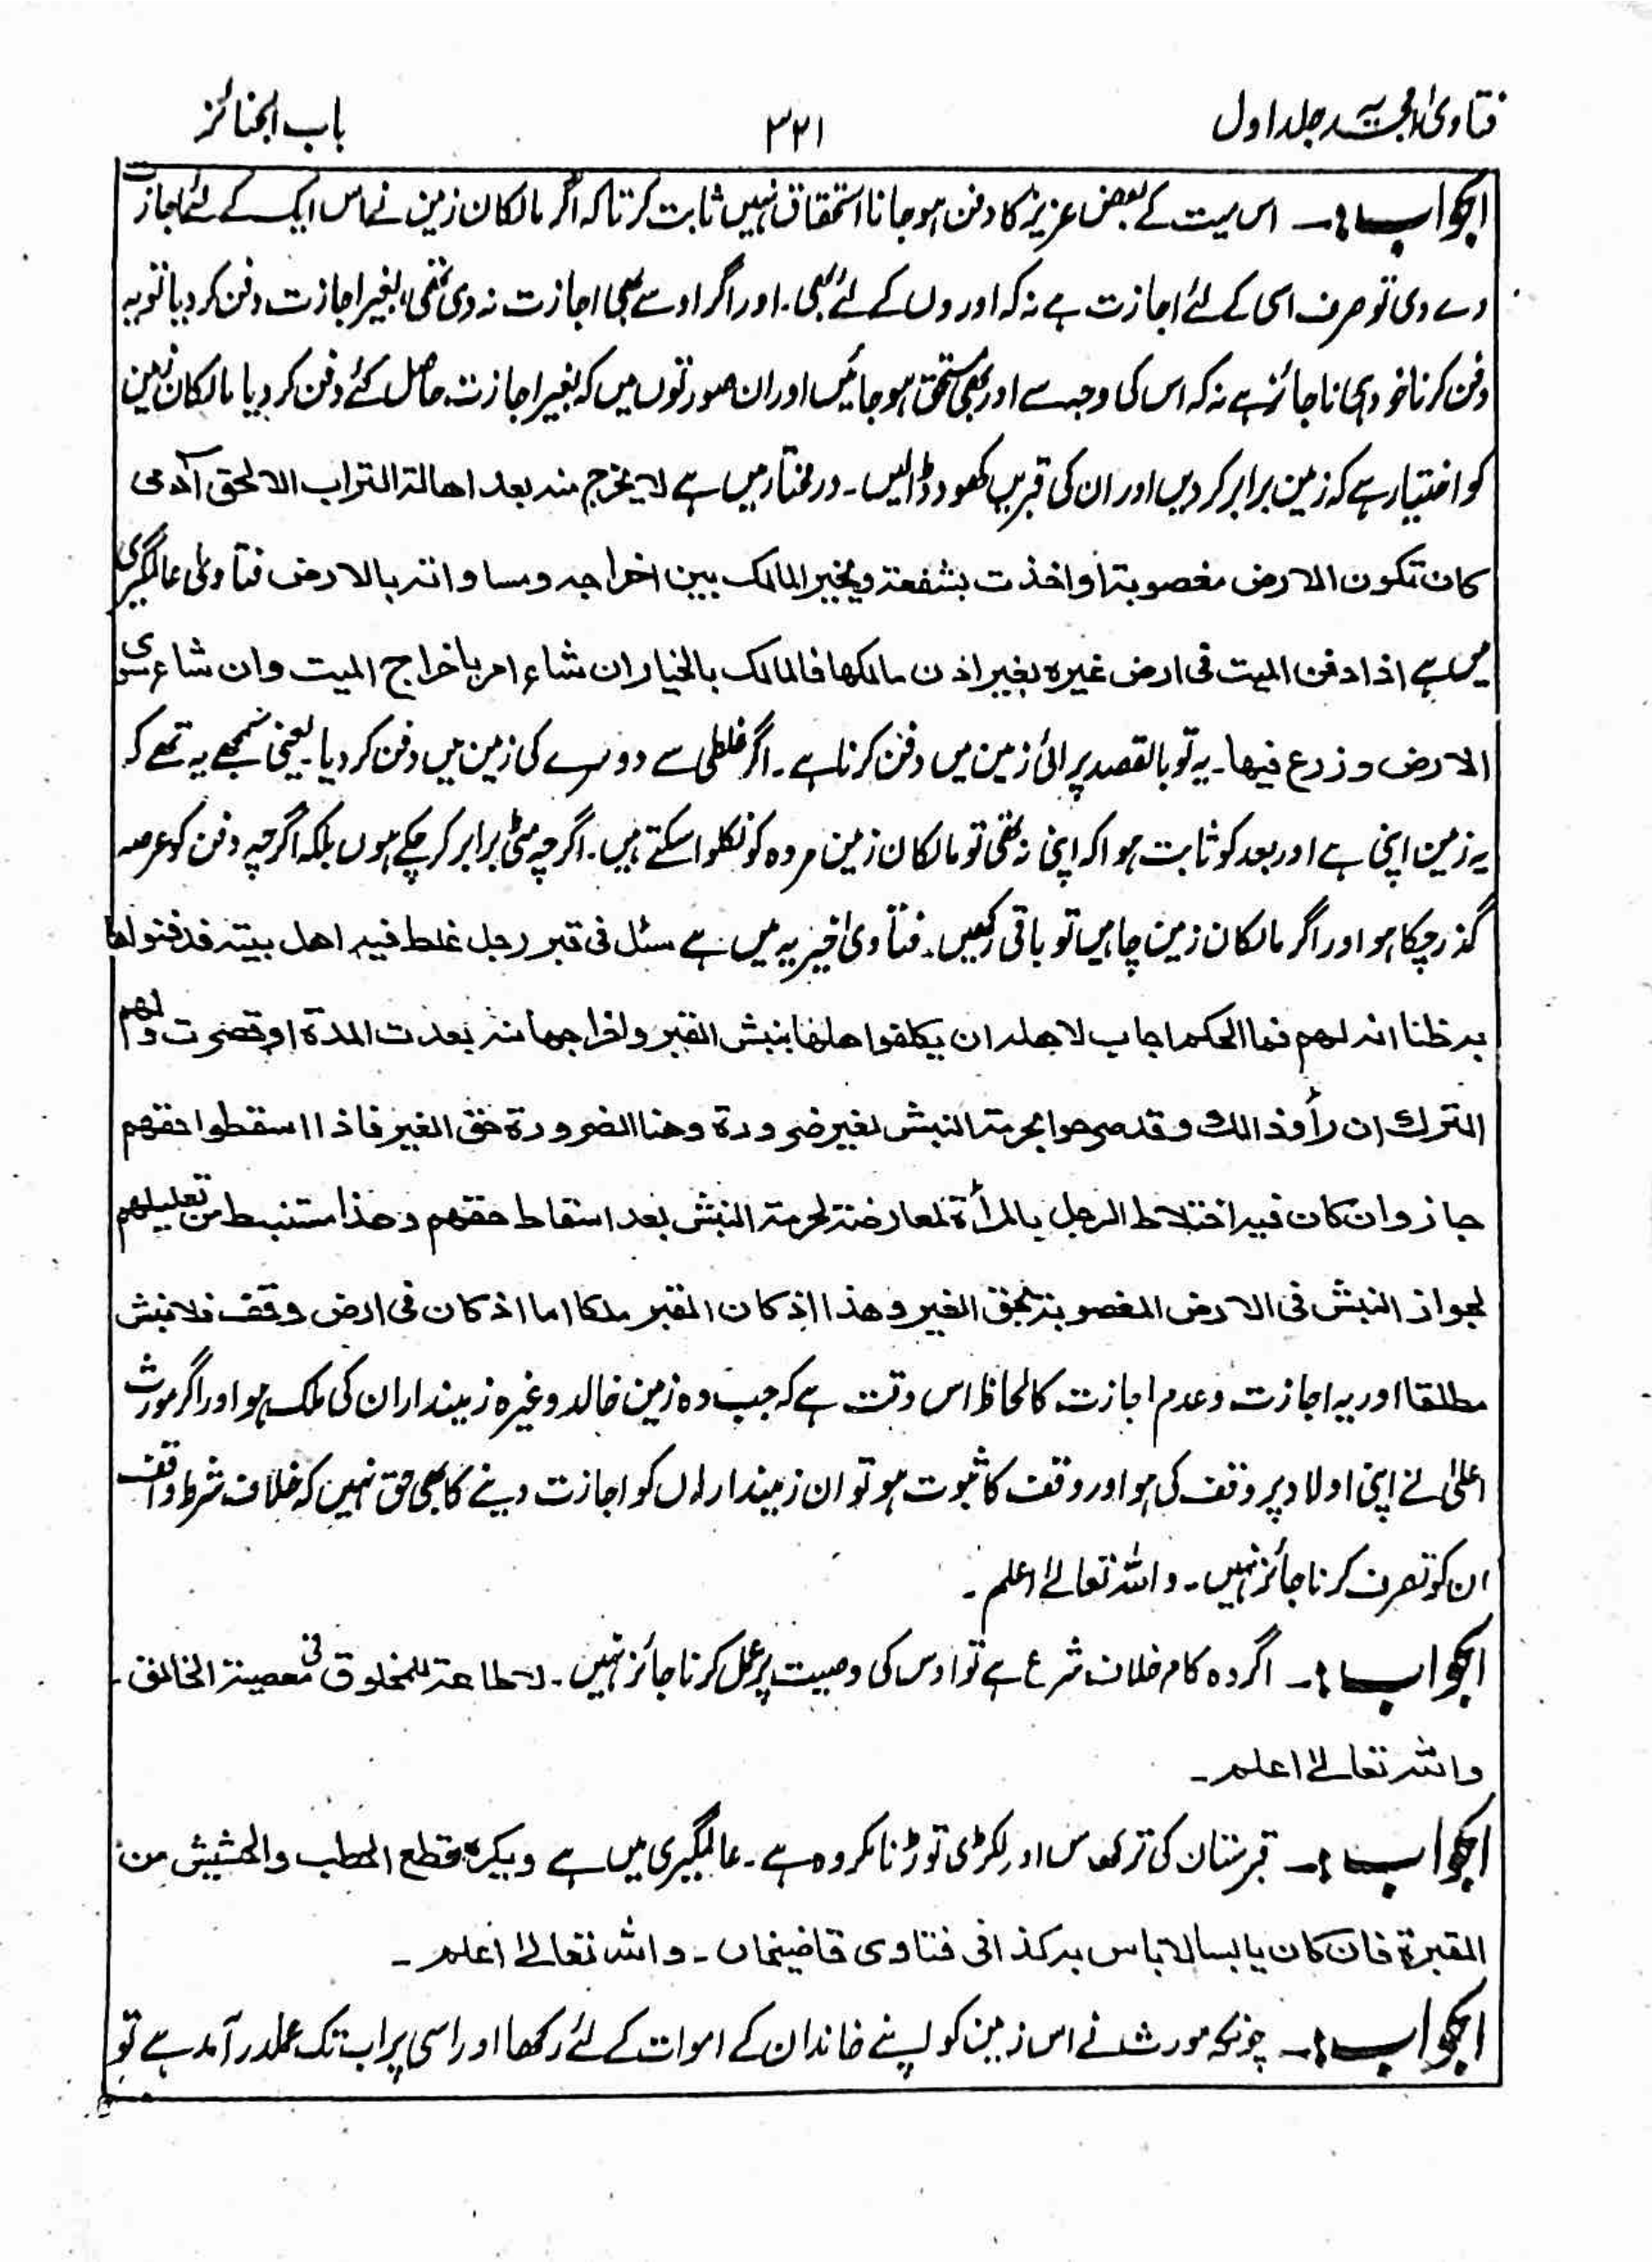 فتاویٰ امجدیہ جلد اول ۳۲۱ باب الجنائز
الجواب :۔ اس میت کے بعض عزیز کا دفن ہوجانا استحقاق نہیں ثابت کرتا کہ اگر مالکان زمین نے اس ایک کے لئے اجازت
دے دی تو صرف اسی کے لئے اجازت ہے نہ کہ اوروں کے لئے بھی ۔ اور اگر اوسے بھی اجازت نہ دی تھی، بغیر اجازت دفن کردیا تو یہ
دفن کرنا خود ہی ناجائز ہے نہ کہ اس کی وجہ سے اور بھی مستحق ہوجائیں اور ان صورتوں میں کہ بغیر اجازت حاصل کئے دفن کردیا مالکان زمین
کو اختیار ہے کہ زمین برابر کردیں اور ان کی قبریں کھود ڈالیں ۔ درمختار میں ہے لا یخرج منہ بعد اھالۃ التراب الا لحق آدمی
کان تکون الارض مغصوبۃ او اخذت بشفعۃ و یخیر المالک بین اخراجہ و مساواتہ بالارض فتاویٰ عالمگیری
میں ہے اذا دفن المیت فی ارض غیرہ بغیر اذن مالکھا فالمالک بالخیار ان شاء امر باخراج المیت وان شاء سوی
الارض و زرع فیھا ۔ یہ تو بالقصد پرائی زمین میں دفن کرنا ہے ۔ اگر غلطی سے دوسرے کی زمین میں دفن کردیا ۔ یعنی سمجھے یہ تھے کہ
یہ زمین اپنی ہے اور بعد کو ثابت ہوا کہ اپنی نہ تھی تو مالکان زمین مردہ کو نکلوا سکتے ہیں ۔ اگرچہ مٹی برابر کرچکے ہوں بلکہ اگرچہ دفن کو عرصہ
گذر چکا ہو اور اگر مالکان زمین چاہیں تو باقی رکھیں ۔ فتاویٰ خیریہ میں ہے سئل فی قبر رجل غلط فیہ اھل بیتہ فدفنوا
بہ ظنا انہ لھم فما الحکم اجاب لاھلہ ان یکلفوا اھلھا بنبش القبر و اخراجھا منہ بعدت المدۃ او قصرت ولھم
الترک ان رأوذالک وقد صرحوا بحرمۃ النبش لغیر ضرورۃ وھنا الضرورۃ حق الغیر فاذا اسقطوا حقھم
جاز وان کان فیہ اختلاط الرجل بالمرأۃ لمعارضۃ لحرمۃ النبش بعد اسقاط حقھم وھذا مستنبط من تعلیلھم
لجواز النبش فی الارض المغصوبۃ بحق الغیر وھذا اذ کان القبر ملکا اما اذ کان فی ارض وقف فلا نبش
مطلقا اور یہ اجازت وعدم اجازت کا لحاظ اس وقت ہے کہ جب وہ زمین خالد وغیرہ زمینداران کی ملک ہو اور اگر مورث
اعلیٰ نے اپنی اولاد پر وقف کی ہو اور وقف کا ثبوت ہو تو ان زمینداروں کو اجازت دینے کا بھی حق نہیں کہ خلاف شرط واقف
ان کو تصرف کرنا جائز نہیں ۔ واللہ تعالےٰ اعلم ۔
الجواب :۔ اگر وہ کام خلاف شرع ہے تو اوس کی وصیت پر عمل کرنا جائز نہیں ۔ لا طاعۃ للمخلوق فی معصیۃ الخالق ۔
واللہ تعالےٰ اعلم ۔
الجواب :۔ قبرستان کی تر گھاس اور لکڑی توڑنا مکروہ ہے ۔ عالمگیری میں ہے ویکرہ قطع الحطب والحشیش من
المقبرۃ فان کان یابسا لاباس بہ کذا فی فتاوی قاضیخاں ۔ واللہ تعالےٰ اعلم ۔
الجواب :۔ چونکہ مورث نے اس زمین کو اپنے خاندان کے اموات کے لئے رکھا اور اسی پر اب تک عملدرآمد ہے تو